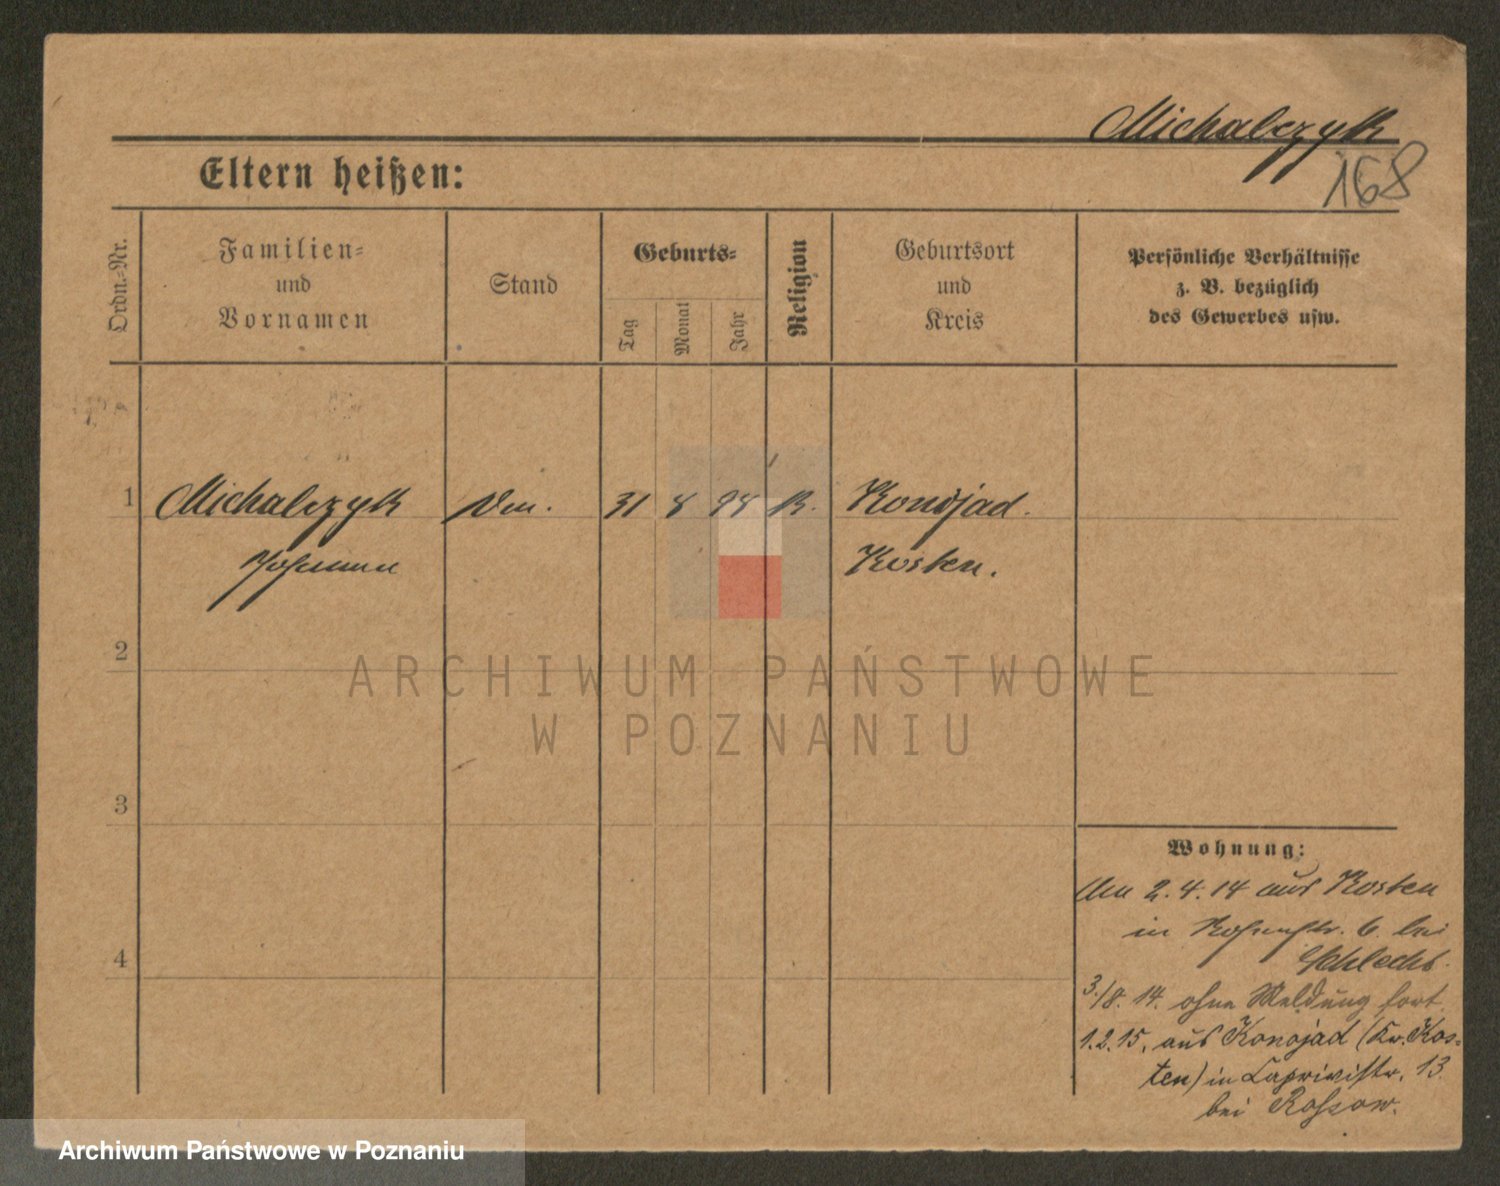 Michalczyk
168
Eltern heißen:
Ordn.-Nr.
Familien-
und
Vornamen
Stand
Geburts-
Tag
Monat
Jahr
Religion
Geburtsort
und
Kreis
Persönliche Verhältnisse
z. B. bezüglich
des Gewerbes usw.
1 Michalczyk 31 8 98 K. Konojad.
Johann Kosten.
2
3
4
Wohnung:
Am 2.4.14 aus Kosten
in 6 bei
Schlecht.
3./8. 14. ohne Meldung fort
1.2.15. aus Konojad (Kr. Kos-
ten) in Caprivistr. 13.
bei
ARCHIWUM PAŃSTWOWE
W POZNANIU
Archiwum Państwowe w Poznaniu